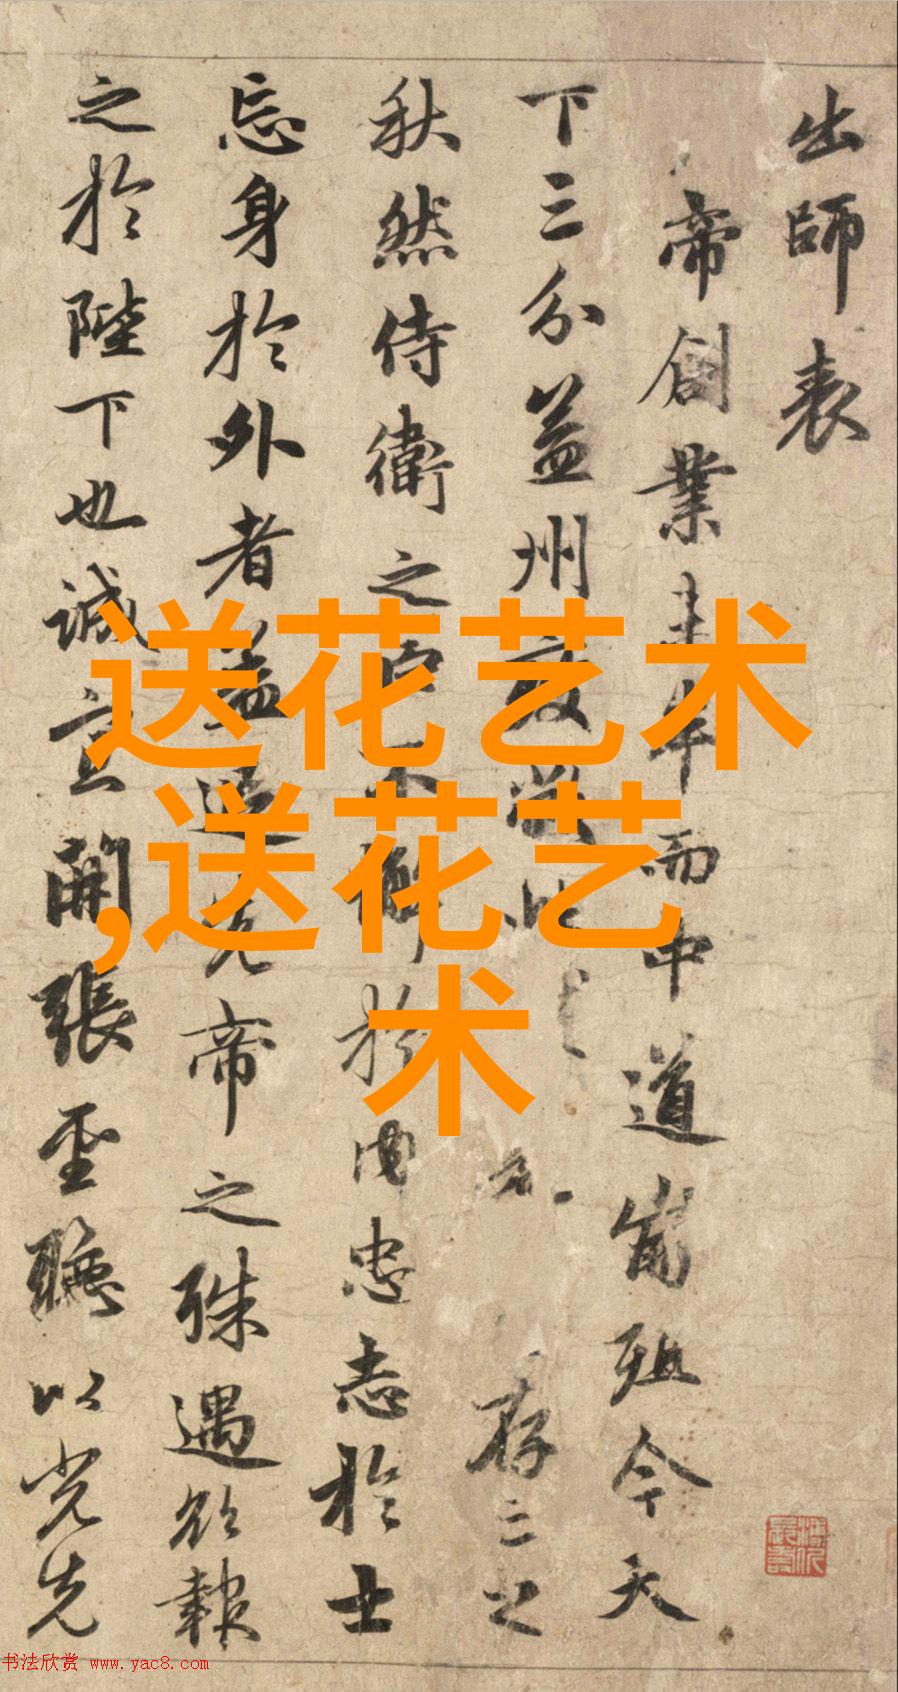 出師表
帝創業未半而中道崩殂今天
下三分益州疲弊此存亡之
秋然侍衛之臣不懈於内忠志於士
忘身於外者蓋追先帝之殊遇欲報
之於陛下也誠宜開張聖聽以光先
送花艺术
,送花艺
术
书法欣赏 www.yac8.com